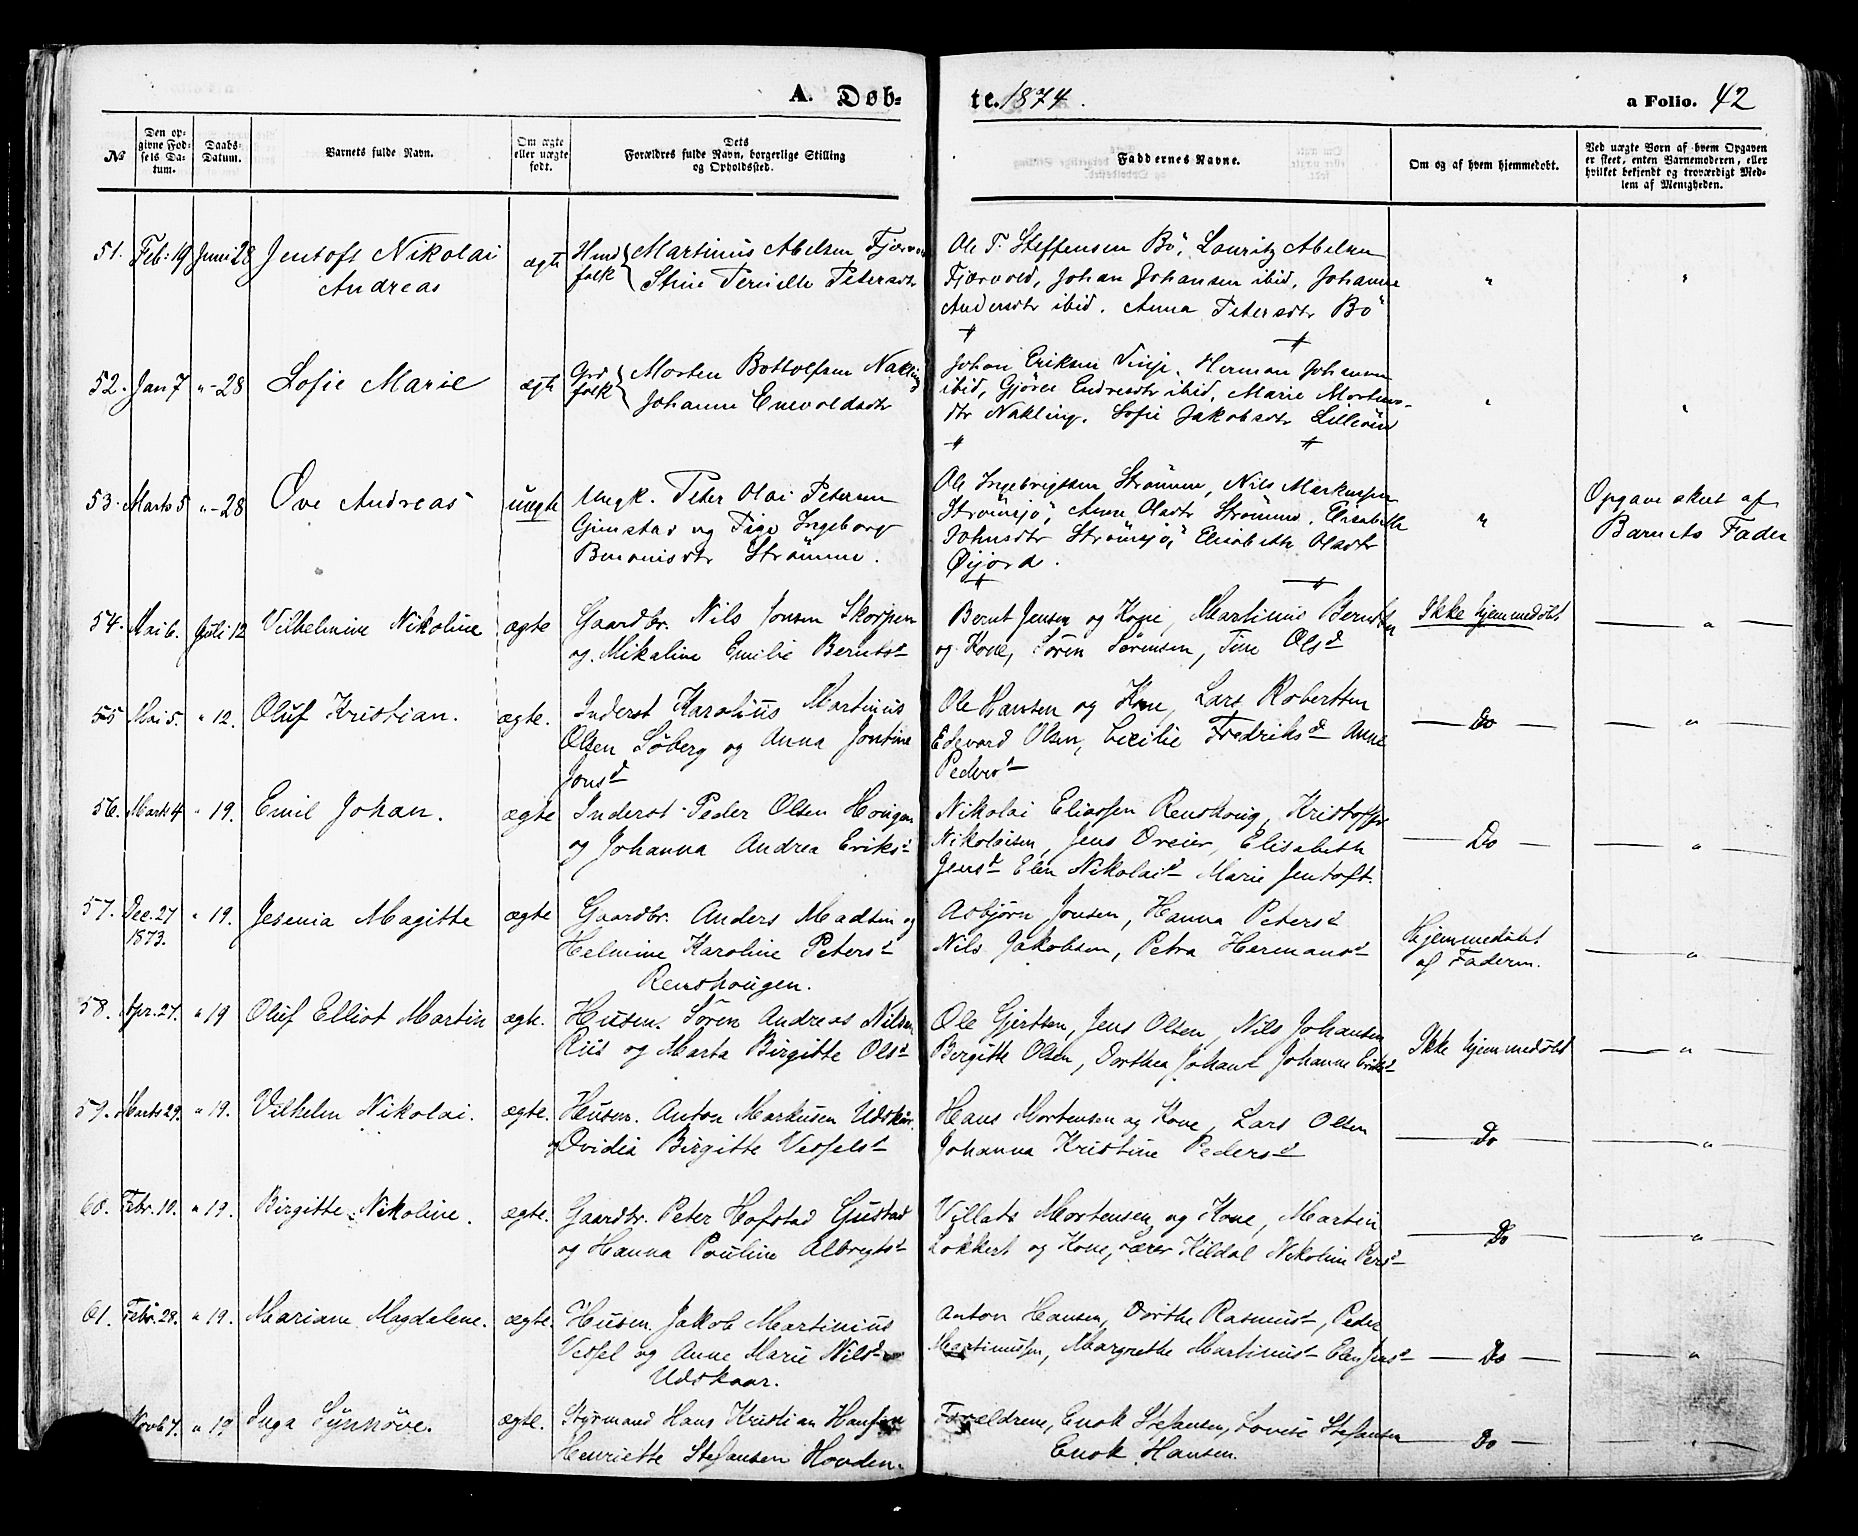 A. Døb- te. 1874. a Folio. 42
№
Den op-
givne Fød-
sels Da-
tum.
Daabs-
Datum.
Barnets fulde Navn.
Om ægte
eller uægte
født.
Dets
Forældres fulde Navn, borgerlige Stilling
og Opholdssted.
Faddernes Navne.
Om og af hvem hjemmedøbt.
Ved uægte Børn af hvem Opgaven
er skeet, enten Barnemoderen, eller
hvilket bekjendt og troværdigt Med-
lem af Menigheden.
51. Feb: 19 Juni 28 Jentoft Nikolai
Andreas
ægte
Husfolk Martinus Abelsen
Stine Pernille Petersdtr
Ole P. Steffensen Bö, Lauritz Abelsen
Fjærvold, Johan Johansen ibid, Johanne
Andersdtr ibid. Anna Petersdtr Bö
52. Jan 7 "-28 Sofie Marie
ægte
Grdfolk Morten Bottolfsen Nakling
Johanne Enevoldsdtr
Johan Eriksen Vinje. Herman Johansen
ibid, Gjörer Endresdtr ibid, Marie Mortens-
dtr Nakling. Sofie Jakobsdtr
53. Marts 5 "-28 Ove Andreas
uægte
Ungk. Peter Olai Petersen
Gimstad og Pige Ingeborg
Strømme.
Ole Ingebrigtsen Strømme, Nils Markussen
Strömsjö, Anne Olsdtr Strømme. Elisabeth
Johnsdtr Strömsjö, Elisabeth Olsdtr
Øijord.
"
Opgave skeet af
Barnets Fader
54. Mai 6. Juli 12 Vilhelmine Nikoline
ægte
Gaardbr. Nils Jonsen Skorpen
og Mikaline Emilie Bernts d
Bernt Jensen og Kone, Martinus Berntsen
og Kone, Søren Sørensen, Tine Ols d
Ikke hjemmedøbt
"
55 Mai 5. " 12. Oluf Kristian.
ægte.
Inderst Karolius Martinus
Olsen Söberg og Anna Jontine
Jons d
Ole Hansen og Kone, Lars Robertsen
Edevard Olsen, Cecilie Fredriks d Anne
Peders d
Do
"
56. Marts 4 " 19. Emil Johan.
ægte
Inderst Peder Olsen Hougen
og Johanna Andrea Eriks d
Nikolai Eliassen Renshoug, Kristoffer
Nikolaisen, Jens Dreier, Elisabeth
Jens d Elen Nikolai d Marie Jentoft.
Do
"
57. Dec. 27
1873.
" 19. Jesenia Magitte
ægte
Gaardbr. Anders Madsen og
Helmine Karoline Peters d
Renshougen.
Asbjørn Jonsen, Hanna Peters d
Nils Jakobsen, Petra Hermans d
Hjemmedøbt
af Faderen.
"
58. Apr. 27. " 19 Oluf Elliot Martin
ægte.
Husm. Sören Andreas Nilsen
Ruis og Marta Birgitte Ols d
Ole Gjertsen, Jens Olsen, Nils Johansen
Bergitte Olsen, Dorthea Johans d Johanne Eriks d
Ikke hjemmedøbt
"
59. Marts 29. " 19. Vilhelm Nikolai.
ægte.
Husm. Anton Markusen Udskår.
og Ovidia Birgitte Vessels d
Hans Mortensen og Kone, Lars Olsen
Johanna Kristine Peders d
Do
"
60. Febr. 10. " 19. Birgitte Nikoline.
ægte.
Gaardbr. Peter Hofstad Gustad
og Hanna Pauline Albregts d
Villats Mortensen og Kone, Martin
Lokkert og Kone, Kildal Nikoline Pers d
Do
"
61. Febr. 28. " 19. Mariane Magdalene.
ægte.
Husm. Jakob Martinius
Vessel og Anne Marie Nils d
Udskaar.
Anton Hansen, Dorthe Rasmus d, Peder
Martinussen, Margrethe Martinus d Elen Jens d
Do
"
Novb 7. " 19 Inga Synnöve.
ægte.
Styrmand Hans Kristian Hansen
Henriette Stefansen Hovden.
Forældrene, Enok Stefansen, Lovise Stefansen
Enok Hansen.
Do
"